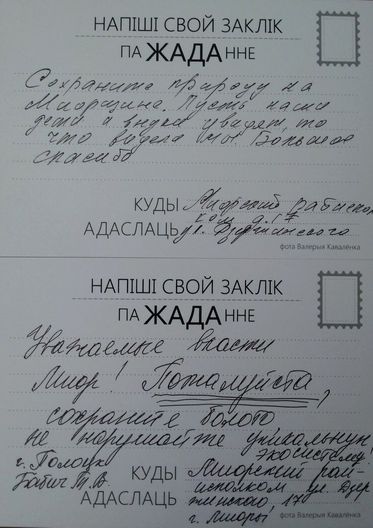 НАПІШІ СВОЙ ЗАКЛІК
ПА ЖАДА ННЕ
Сохраните природу на
Миорщине. Пусть наши
дети и внуки увидят, то
что видела мы. Большое
спасибо
КУДЫ Миорский райиспол
ком д. 17
АДАСЛАЦЬ ул. Дзержинского
фота Валерыя Кавалёнка
НАПІШІ СВОЙ ЗАКЛІК
ПА ЖАДА ННЕ
Уважаемые власти
Миор! Пожалуйста,
сохраните болото,
не нарушайте уникальную
экосистему!
г. Полоцк
КУДЫ Миорский рай-
Бабич Т.В.
исполком ул. Дзер
АДАСЛАЦЬ жинского 17
г. Миоры
фота Валерыя Кавалёнка